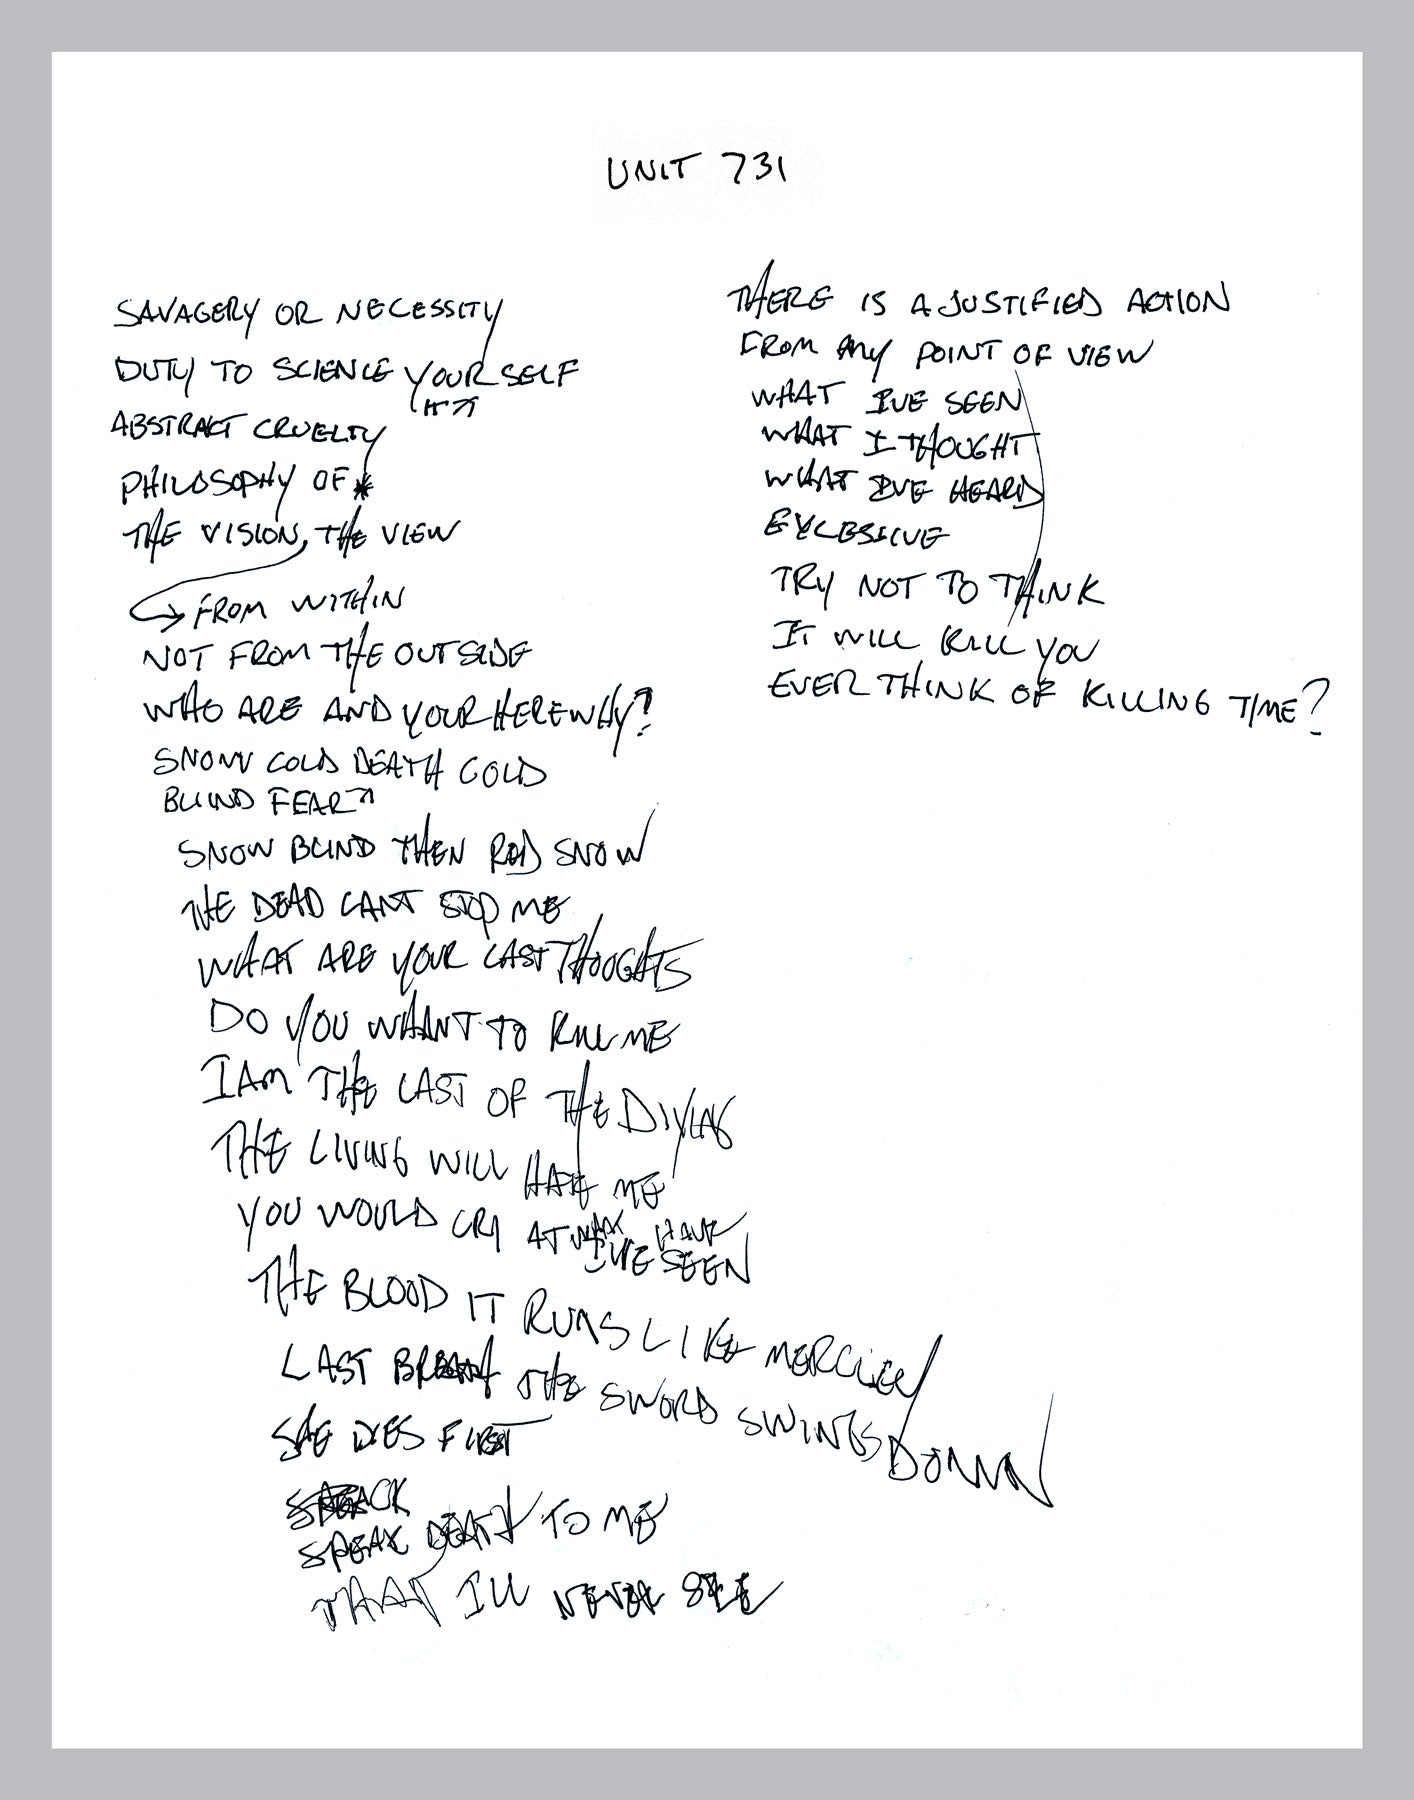 UNIT 731
SAVAGERY OR NECESSITY
DUTY TO SCIENCE YOURSELF
IT
ABSTRACT CRUELTY
PHILOSOPHY OF *
THE VISION, THE VIEW
FROM WITHIN
NOT FROM THE OUTSIDE
WHO ARE AND YOUR HERE WHY?
SNOW COLD DEATH COLD
BLIND FEAR
SNOW BLIND THEN RED SNOW
THE DEAD CANT STOP ME
WHAT ARE YOUR LAST THOUGHTS
DO YOU WHANT TO KILL ME
I AM THE LAST OF THE DIYING
THE LIVING WILL HATE ME
YOU WOULD CRY AT HAVE
I'VE SEEN
THE BLOOD IT RUNS LIKE MERCUEY
LAST BREATH THE SWORD SWINGS DOWN
SHE DIES FIRST
SPEAK DEATH TO ME
THAT ILL NEVER SEE
THERE IS A JUSTIFIED ACTION
FROM ANY POINT OF VIEW
WHAT IVE SEEN
WHAT I THOUGHT
WHAT IVE HEARD
EXCESSIVE
TRY NOT TO THINK
IT WILL KILL YOU
EVER THINK OF KILLING TIME?